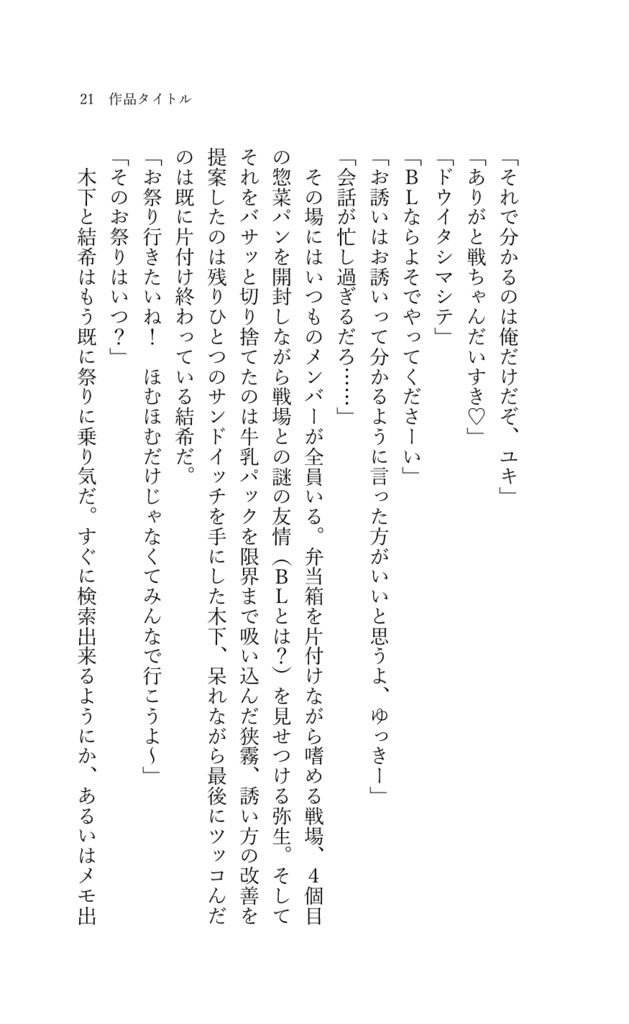 21 作品タイトル
「それで分かるのは俺だけだぞ、ユキ」
「ありがと戦ちゃんだいすき♡」
「ドウイタシマシテ」
「BLならよそでやってくださーい」
「お誘いはお誘いって分かるように言った方がいいと思うよ、ゆっきー」
「会話が忙し過ぎるだろ……」
　その場にはいつものメンバーが全員いる。弁当箱を片付けながら嗜める戦場、4個目
の惣菜パンを開封しながら戦場との謎の友情（BLとは？）を見せつける弥生。そして
それをバサッと切り捨てたのは牛乳パックを限界まで吸い込んだ狭霧、誘い方の改善を
提案したのは残りひとつのサンドイッチを手にした木下、呆れながら最後にツッコんだ
のは既に片付け終わっている結希だ。
「お祭り行きたいね！　ほむほむだけじゃなくてみんなで行こうよ〜」
「そのお祭りはいつ？」
　木下と結希はもう既に祭りに乗り気だ。すぐに検索出来るようにか、あるいはメモ出